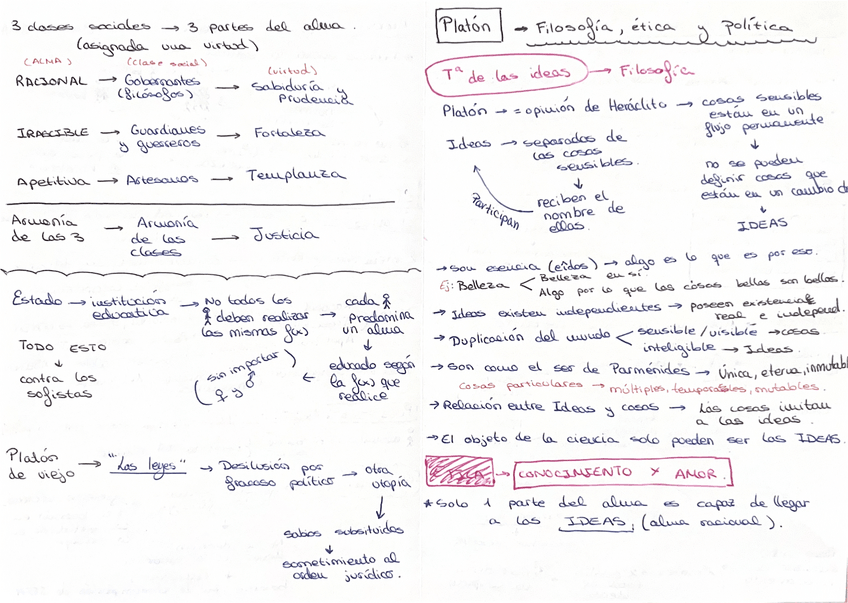 3 clases sociales → 3 partes del alma.
(asignada una virtud)
(ALMA) (clase social) (virtud)
RACIONAL → Gobernantes (filósofos) → Sabiduría y Prudencia
IRASCIBLE → Guardianes y guerreros → Fortaleza
Apetitiva → Artesanos → Templanza
Armonía de las 3 → Armonía de las clases → Justicia
Estado → institución educativa → No todos los deben realizar las mismas f(x) → cada predomina un alma
↓
educado según la f(x) que realice
← (sin importar ♀ y ♂)
TODO ESTO
↓
contra los sofistas
Platón de viejo → "Las leyes" → Desilusión por fracaso político → otra utopía
↓
sabios substituidos
↓
sometimiento al orden jurídico.
Platón → Filosofía, ética y política
Tª de las ideas → Filosofía
Platón → = opinión de Heráclito → cosas sensibles están en un flujo permanente
↓
no se pueden definir cosas que están en un cambio de
↓
IDEAS
Ideas → separadas de las cosas sensibles.
↓
reciben el nombre de ellas.
Participan
→ Son esencia (eîdos) → algo es lo que es por eso.
Ej: Belleza < Belleza en sí.
Algo por lo que las cosas bellas son bellas.
→ Ideas existen independientes → poseen existencia real e independ.
→ Duplicación del mundo < sensible / visible → cosas.
inteligible → Ideas.
→ Son como el ser de Parménides → Única, eterna, inmutabl
cosas particulares → múltiples, temporables, mutables.
→ Relación entre Ideas y cosas → Las cosas imitan a las ideas.
→ El objeto de la ciencia solo pueden ser las IDEAS.
→ CONOCIMIENTO Y AMOR.
* Solo 1 parte del alma es capaz de llegar
a las IDEAS. (alma racional).